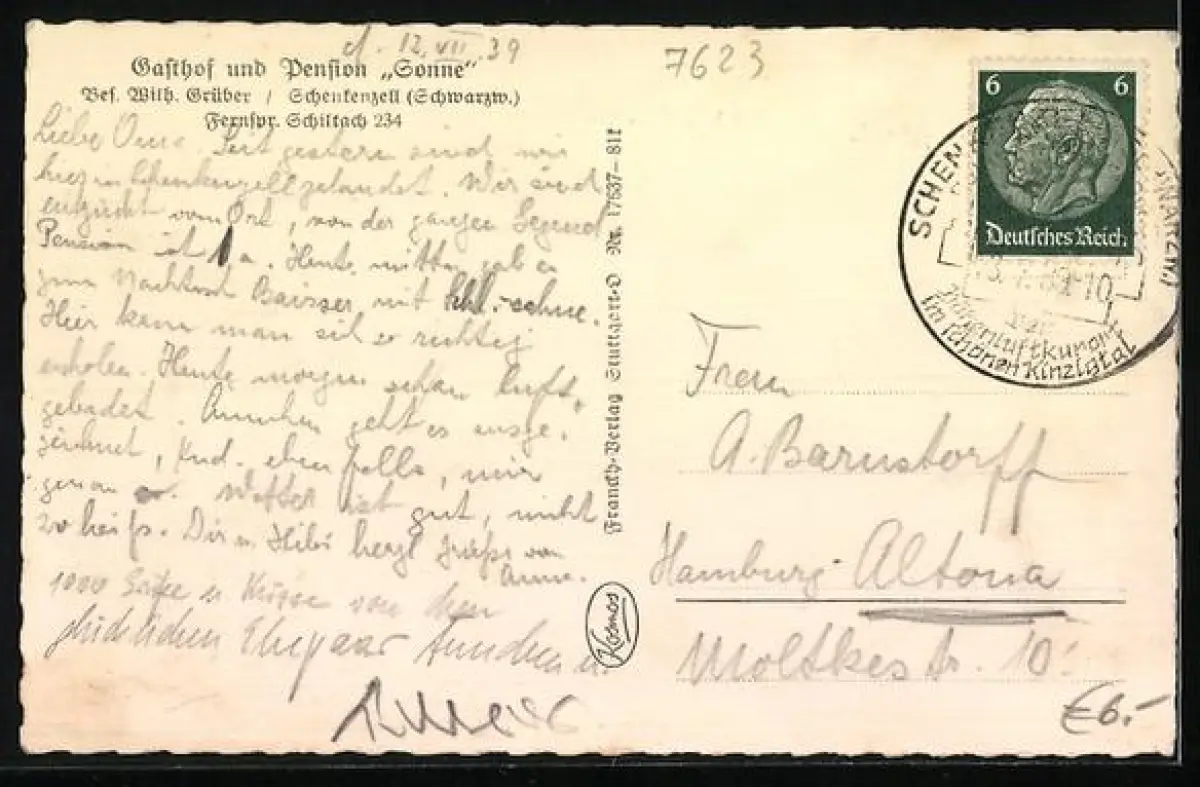 d. 12. VII. 39
7623
Gasthof und Pension „Sonne“
Bes. Wilh. Grüber / Schenkenzell (Schwarzw.)
Fernspr. Schiltach 234
Liebe Oma. Seit gestern sind wir
hier in Schenkenzell gelandet. Wir sind
entzückt vom Ort, von der ganzen Gegend
Pension ist 1a. Heute mittag gab es
zum Nachtisch Baisser mit
Hier kann man sich so richtig
erholen. Heute morgen schon luft-
gebadet. Annchen geht es ausge-
zeichnet, Rud. ebenfalls, mir
genau so. Wetter ist gut, nicht
zu heiß. Dir u. Hibi herzl Grüße von
Anne.
1000 Grüße u. Küsse von dem
glücklichen Ehepaar u.
Franckh-Verlag Stuttgart-O Nr. 17637-81k
Kosmos
6 6
Deutsches Reich
SCHEN
(SCHWARZW.)
-10
Höhenluftkurort
im schönen Kinzigtal
Frau
A. Barnstorff
Hamburg-Altona
Moltkestr. 10
€6.-